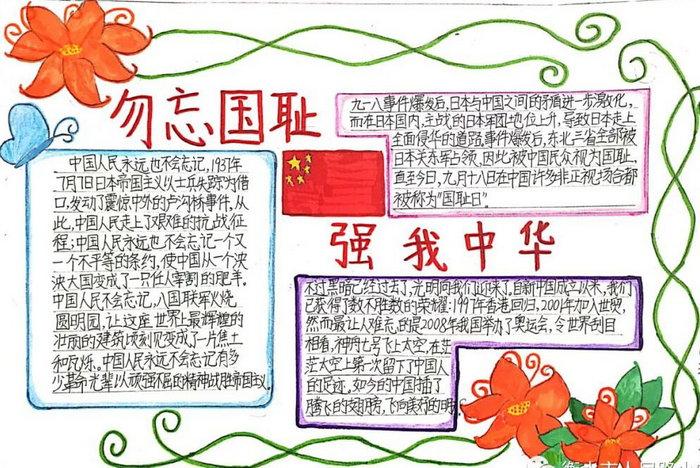 勿忘国耻
九一八事件爆发后,日本与中国之间的矛盾进一步激化,
而在日本国内,主战的日本军团地位上升,导致日本走上
全面侵华的道路,事件爆发后,东北三省全部被
日本关东军占领,因此被中国民众视为国耻,
直至今日,九月十八日在中国许多非正视场合都
被称为“国耻日”。
中国人民永远也不会忘记,1937年
7月7日日本帝国主义以士兵失踪为借
口,发动了震惊中外的卢沟桥事件,从
此,中国人民走上了艰难的抗战征
程;中国人民永远也不会忘记一个又
一个不平等的条约,使中国从一个泱
泱大国变成了一只任人宰割的肥羊。
中国人民不会忘记,八国联军火烧
圆明园,让这座世界上最辉煌的
壮丽的建筑顷刻见变成了一片焦土
和瓦烁。中国人民永远不会忘记有多
少革命先辈以顽强不屈的精神战胜帝国主义
强我中华
不过黑暗已经过去了,光明向我们迎来了,自新中国成立以来,我们
已获得了数不胜数的荣耀:1997年香港回归,2001年加入世贸,
然而最让人难忘的是2008年我国举办了奥运会,令世界刮目
相看,神舟七号飞上太空,在茫
茫太空上第一次留下了中国人
的足迹,如今的中国插了
腾飞的翅膀,飞向美好的明